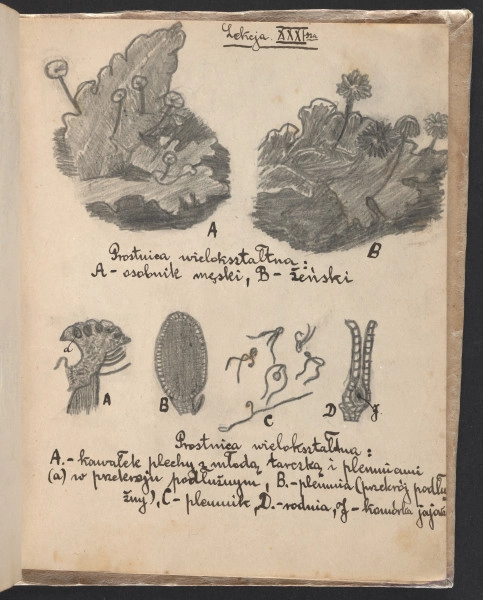 Lekcja. XXXI-sza
A
B
Prostnica wielokształtna:
A- osobnik męski, B- żeński
a
A
B
C
D
J.
Prostnica wielokształtna:
A.- kawałek plechy z młodą tarczką i plemniami
(a) w przekroju podłużnym, B.- plemnia (przekrój podłu-
żny), C- plemnik, D.- rodnia, J- komórka jajowa